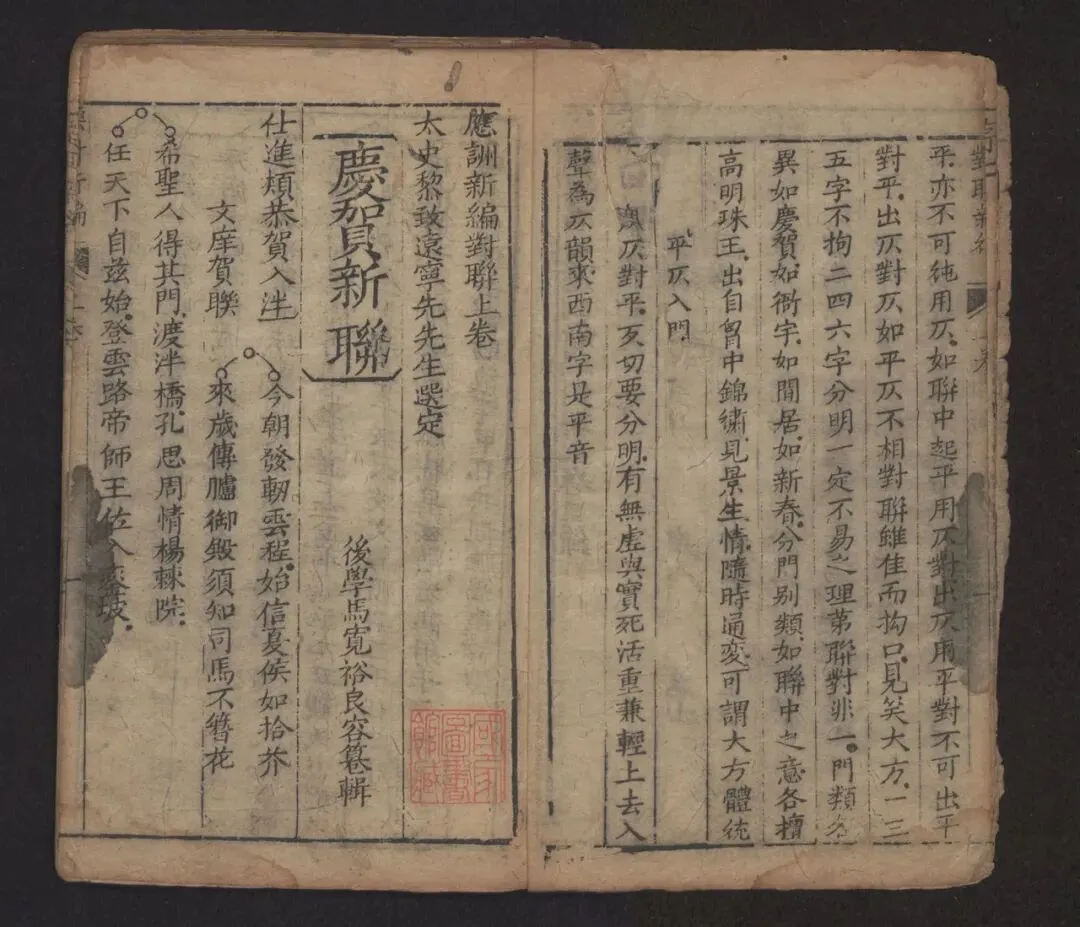 平亦不可純用仄如聯中起平用仄對出仄用平對不可出平
對平出仄對仄如平仄不相對聯雖佳而拘口見笑大方一三
五字不拘二四六字分明一定不易之理第聯對非一門類各
異如慶賀如衙宇如閒居如新春分門別類如聯中之意各擅
高明珠玉出自胷中錦繡見景生情隨時通変可謂大方體統
平仄入門
仄對平歹切要分明有無虛與實死活重兼輕上去入
聲為仄韻來西南字是平音
應詶新編對聯上卷
太史黎致遠寧先先生選定
後學馬寬裕良容纂輯
慶賀新聯
仕進類恭賀入泮
今朝發軔雲程始信夏侯如拾芥
文庠賀聯
來歲傳臚御殿須知司馬不簪花
希聖人得其門渡泮橋孔思周情楊棘院
任天下自兹始登雲路帝師王佐入坡
國家
圖書
館藏